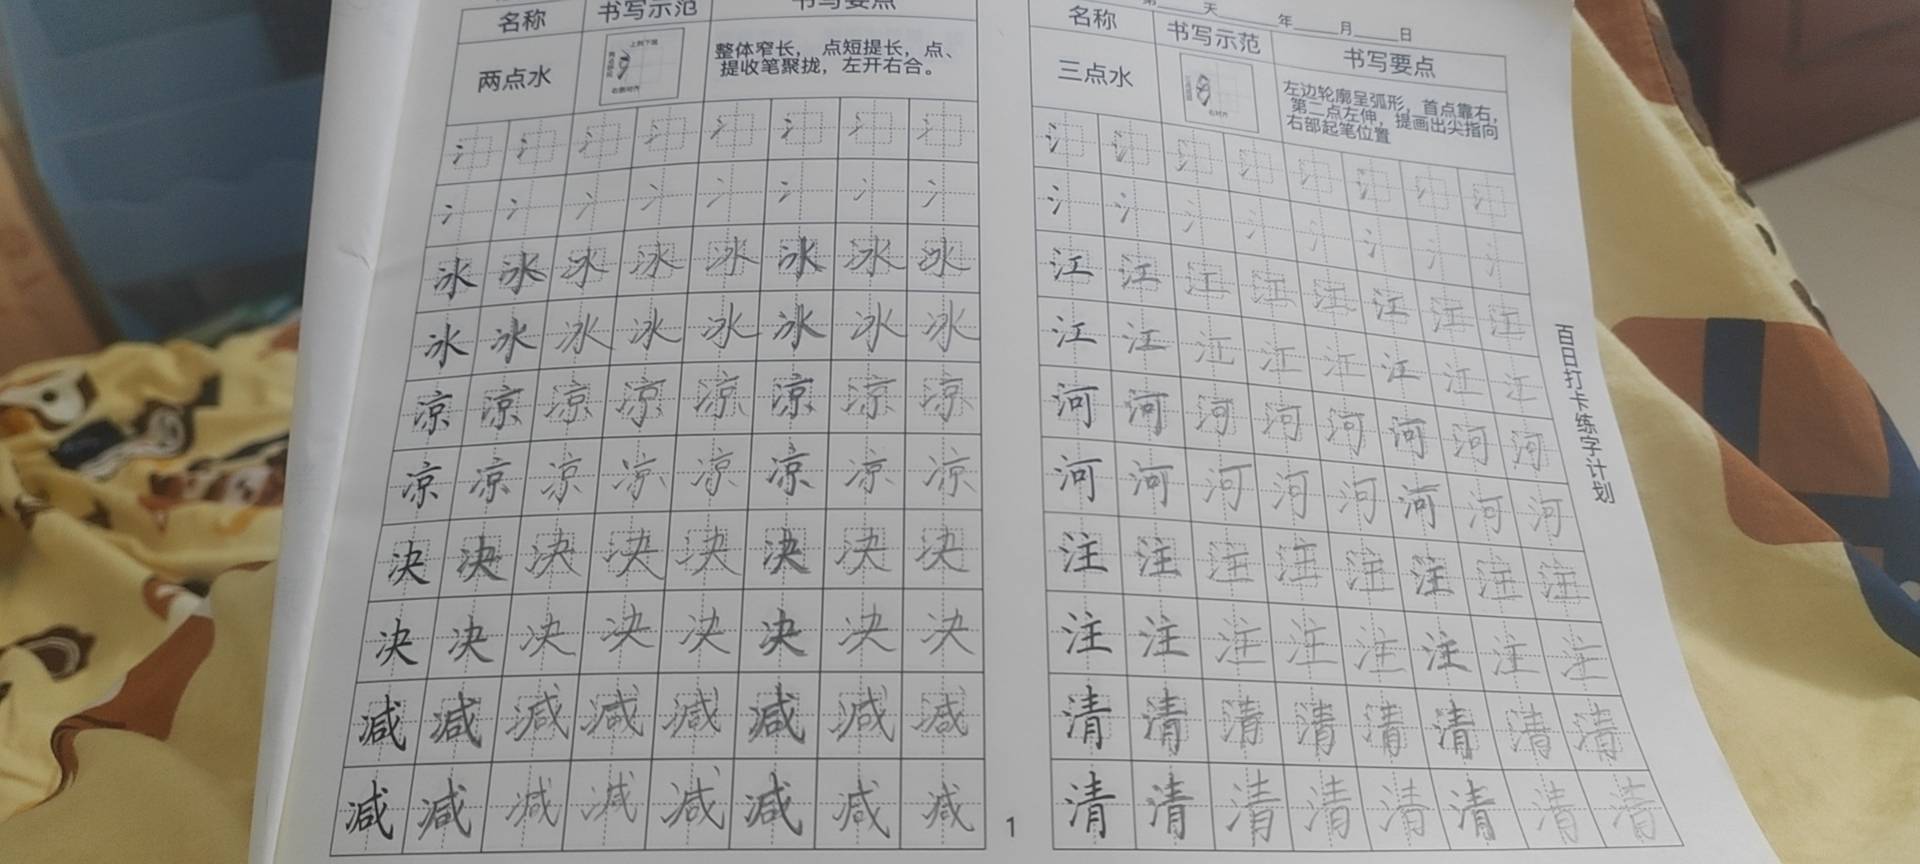 名称 书写示范 书写要点
两点水
上斜下提
右侧对齐
整体窄长，点短提长，点、
提收笔聚拢，左开右合。
冫 冫 冫 冫 冫 冫 冫 冫
冫 冫 冫 冫 冫 冫 冫 冫
冰 冰 冰 冰 冰 冰 冰 冰
冰 冰 冰 冰 冰 冰 冰 冰
凉 凉 凉 凉 凉 凉 凉 凉
凉 凉 凉 凉 凉 凉 凉 凉
决 决 决 决 决 决 决 决
决 决 决 决 决 决 决 决
减 减 减 减 减 减 减 减
减 减 减 减 减 减 减 减
1
第 天 年 月 日
名称 书写示范 书写要点
三点水
左边轮廓呈弧形，首点靠右，
第二点左伸，提画出尖指向
右部起笔位置
氵 氵 氵 氵 氵 氵 氵 氵
氵 氵 氵 氵 氵 氵 氵 氵
江 江 江 江 江 江 江 江
江 江 江 江 江 江 江 江
河 河 河 河 河 河 河 河
河 河 河 河 河 河 河 河
注 注 注 注 注 注 注 注
注 注 注 注 注 注 注 注
清 清 清 清 清 清 清 清
清 清 清 清 清 清 清 清
百日打卡练字计划